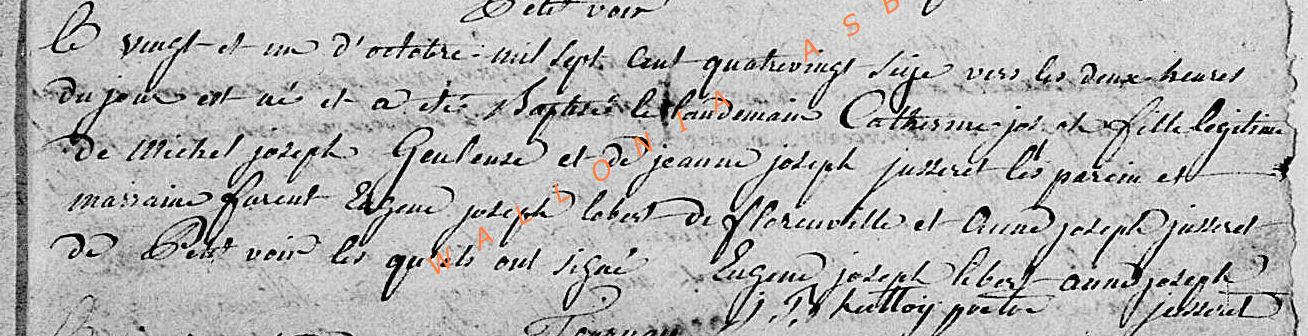 Petit voir
le vingt et un d'octobre mil sept cent quatrevingt seize vers les deux heures
du jour est né et a eté Baptisé le landemain Catherine jos. ph fille legitime
de Michel joseph Geuleuse et de jeanne joseph jusseret les parein et
marraine furent Eugene joseph lobert de florenville et anne joseph jusseret
de Petit voir les quels ont signé Eugene joseph lebert anne joseph
jusseret
prêtre
Tournay
WALLONIA ASB